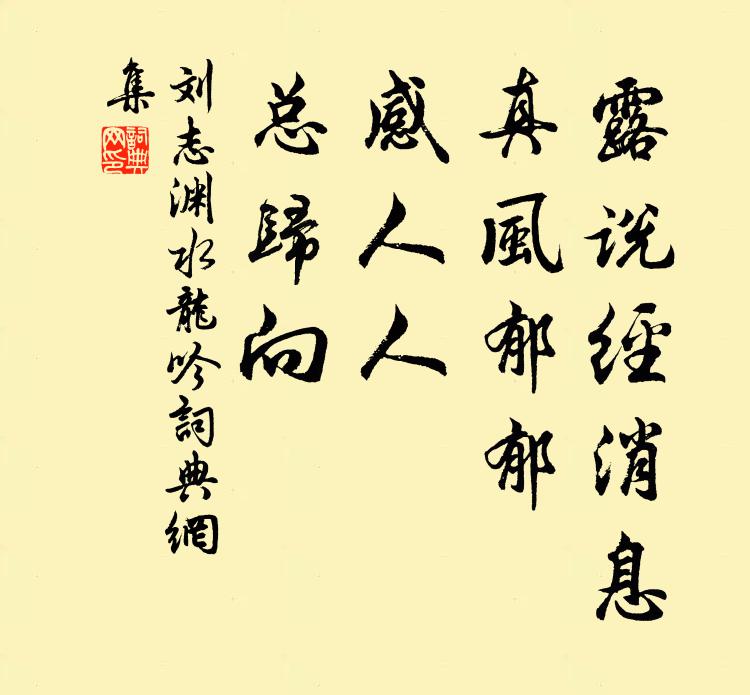 露说經消息
真風郁郁
感人人
总歸向
刘志渊水龍吟詞典網
集
詞典
网印